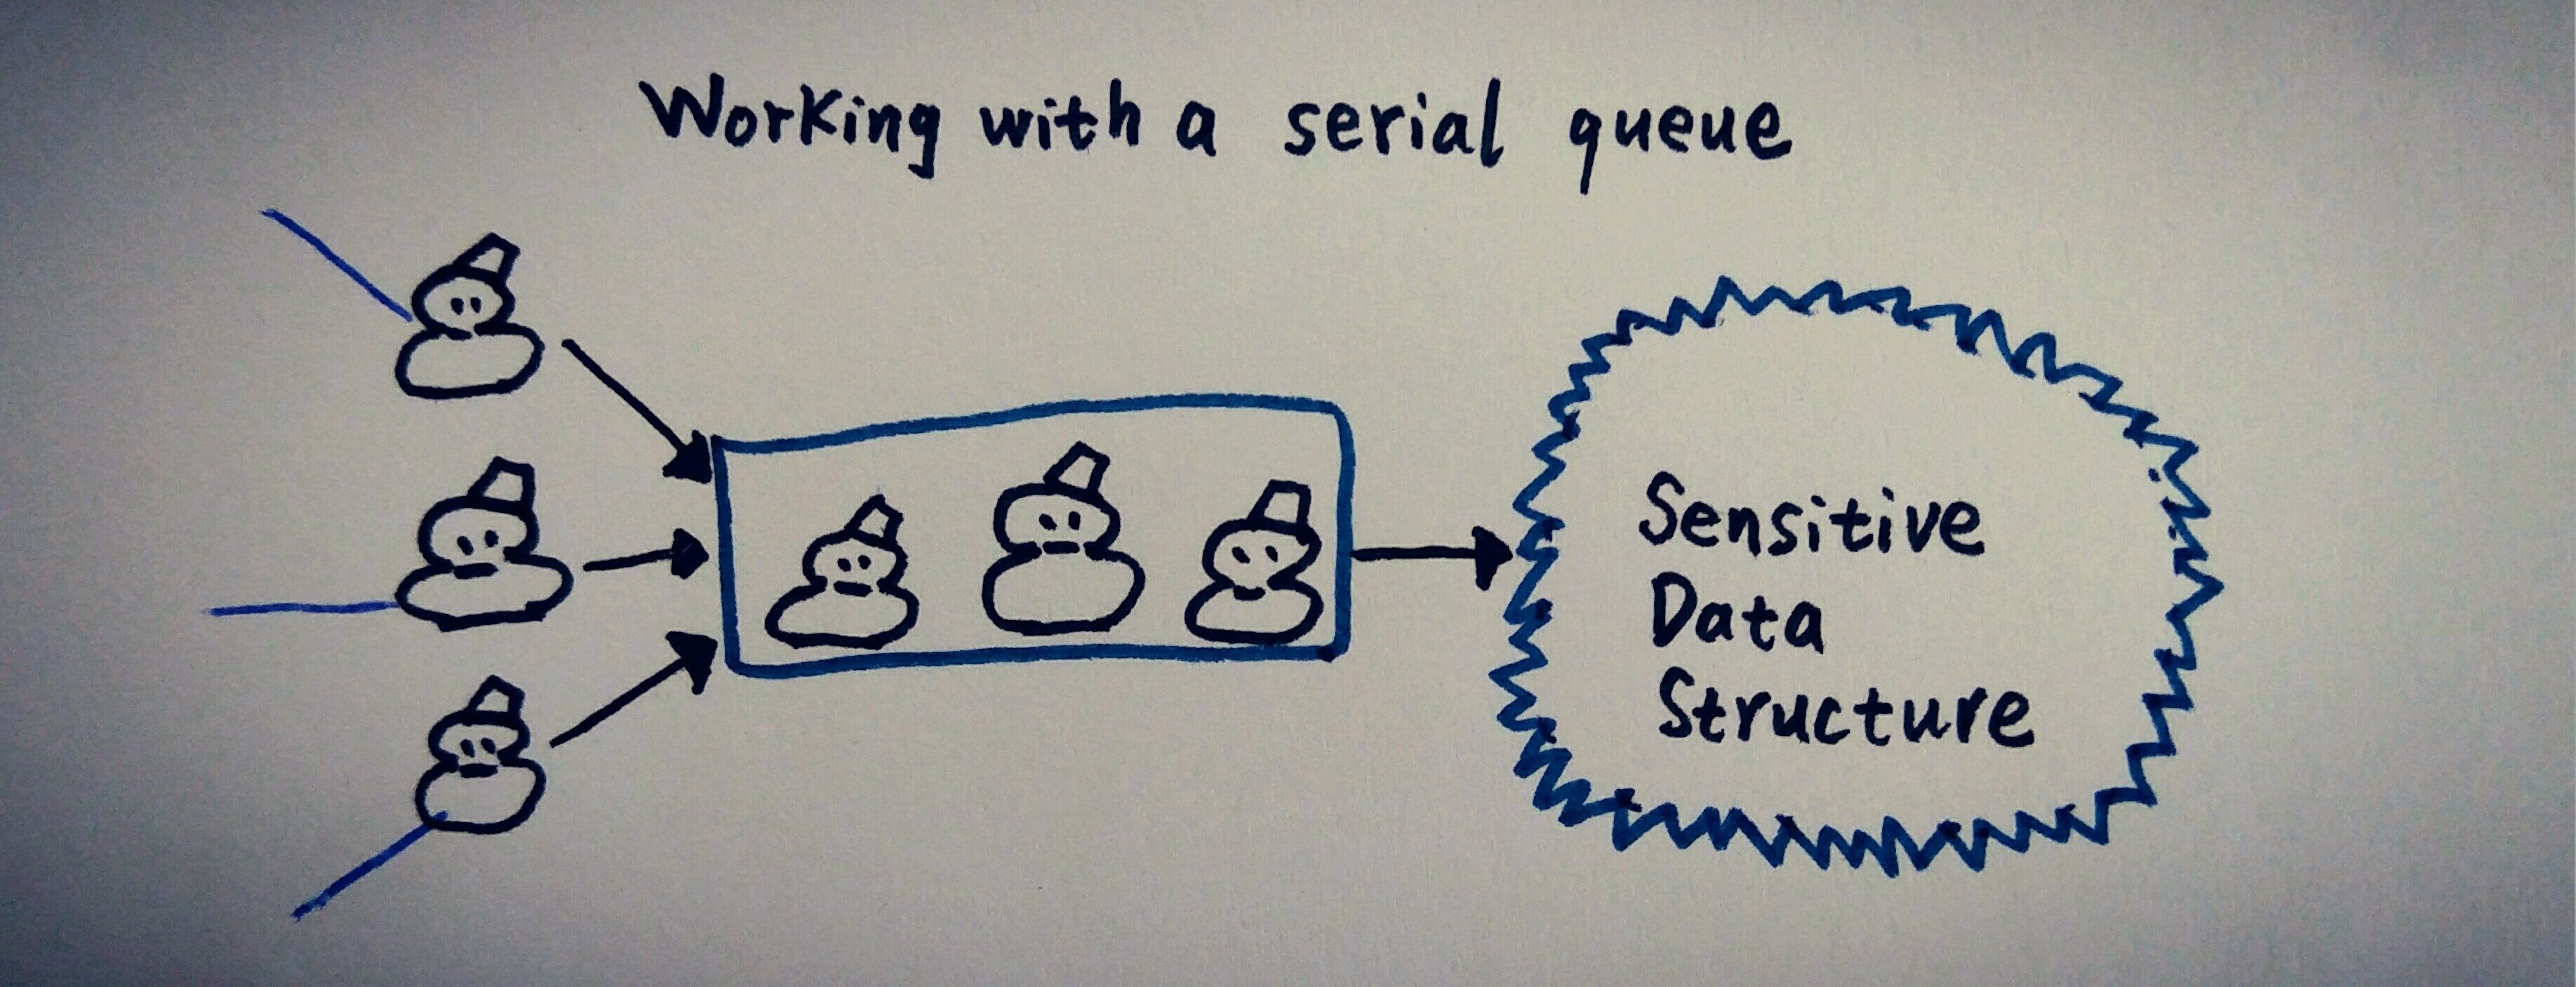 Working with a serial queue
Sensitive
Data
Structure